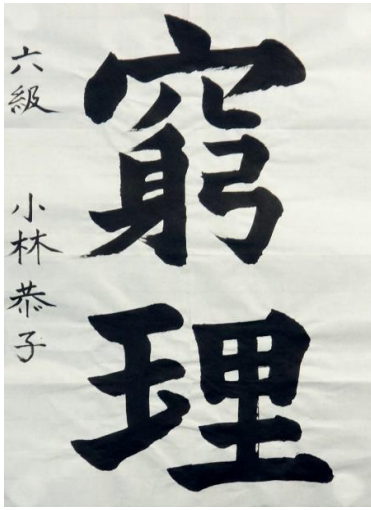 窮理
六級 小林恭子